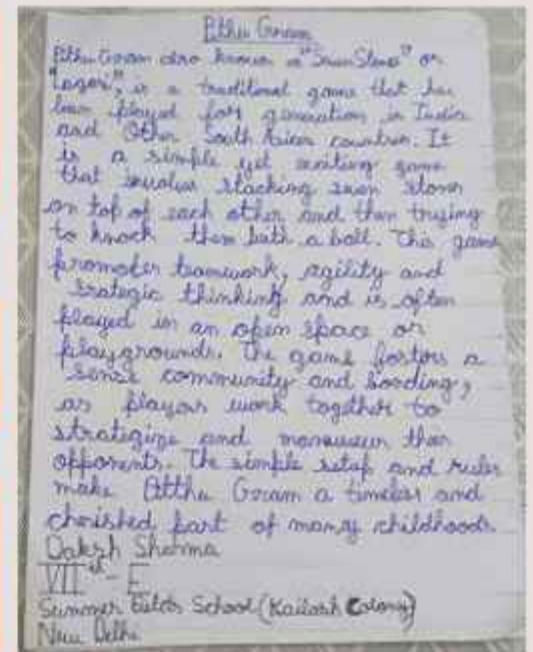 Pithu Garam
Pithu Garam also known as "Seven Stones" or
"Lagori", is a traditional game that has
been played for generation in India
and Other South Asian countries. It
is a simple yet exciting game
that involves stacking seven stones
on top of each other and then trying
to knock them with a ball. This game
promotes teamwork, agility and
strategic thinking and is often
played in an open space or
playgrounds. The game fosters a
sense community and bonding,
as players work together to
strategize and their
opponents. The simple setup and rules
make Pitthu Garam a timeless and
cherished part of many childhoods.
Daksh Sharma
VII - E
Summer Fields School (Kailash Colony)
New Delhi